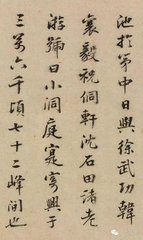 池於第中日與徐武功韓
襄毅祝侗軒沈石田諸老
游號曰小洞庭寔寄興于
三萬六千頃七十二峰間也